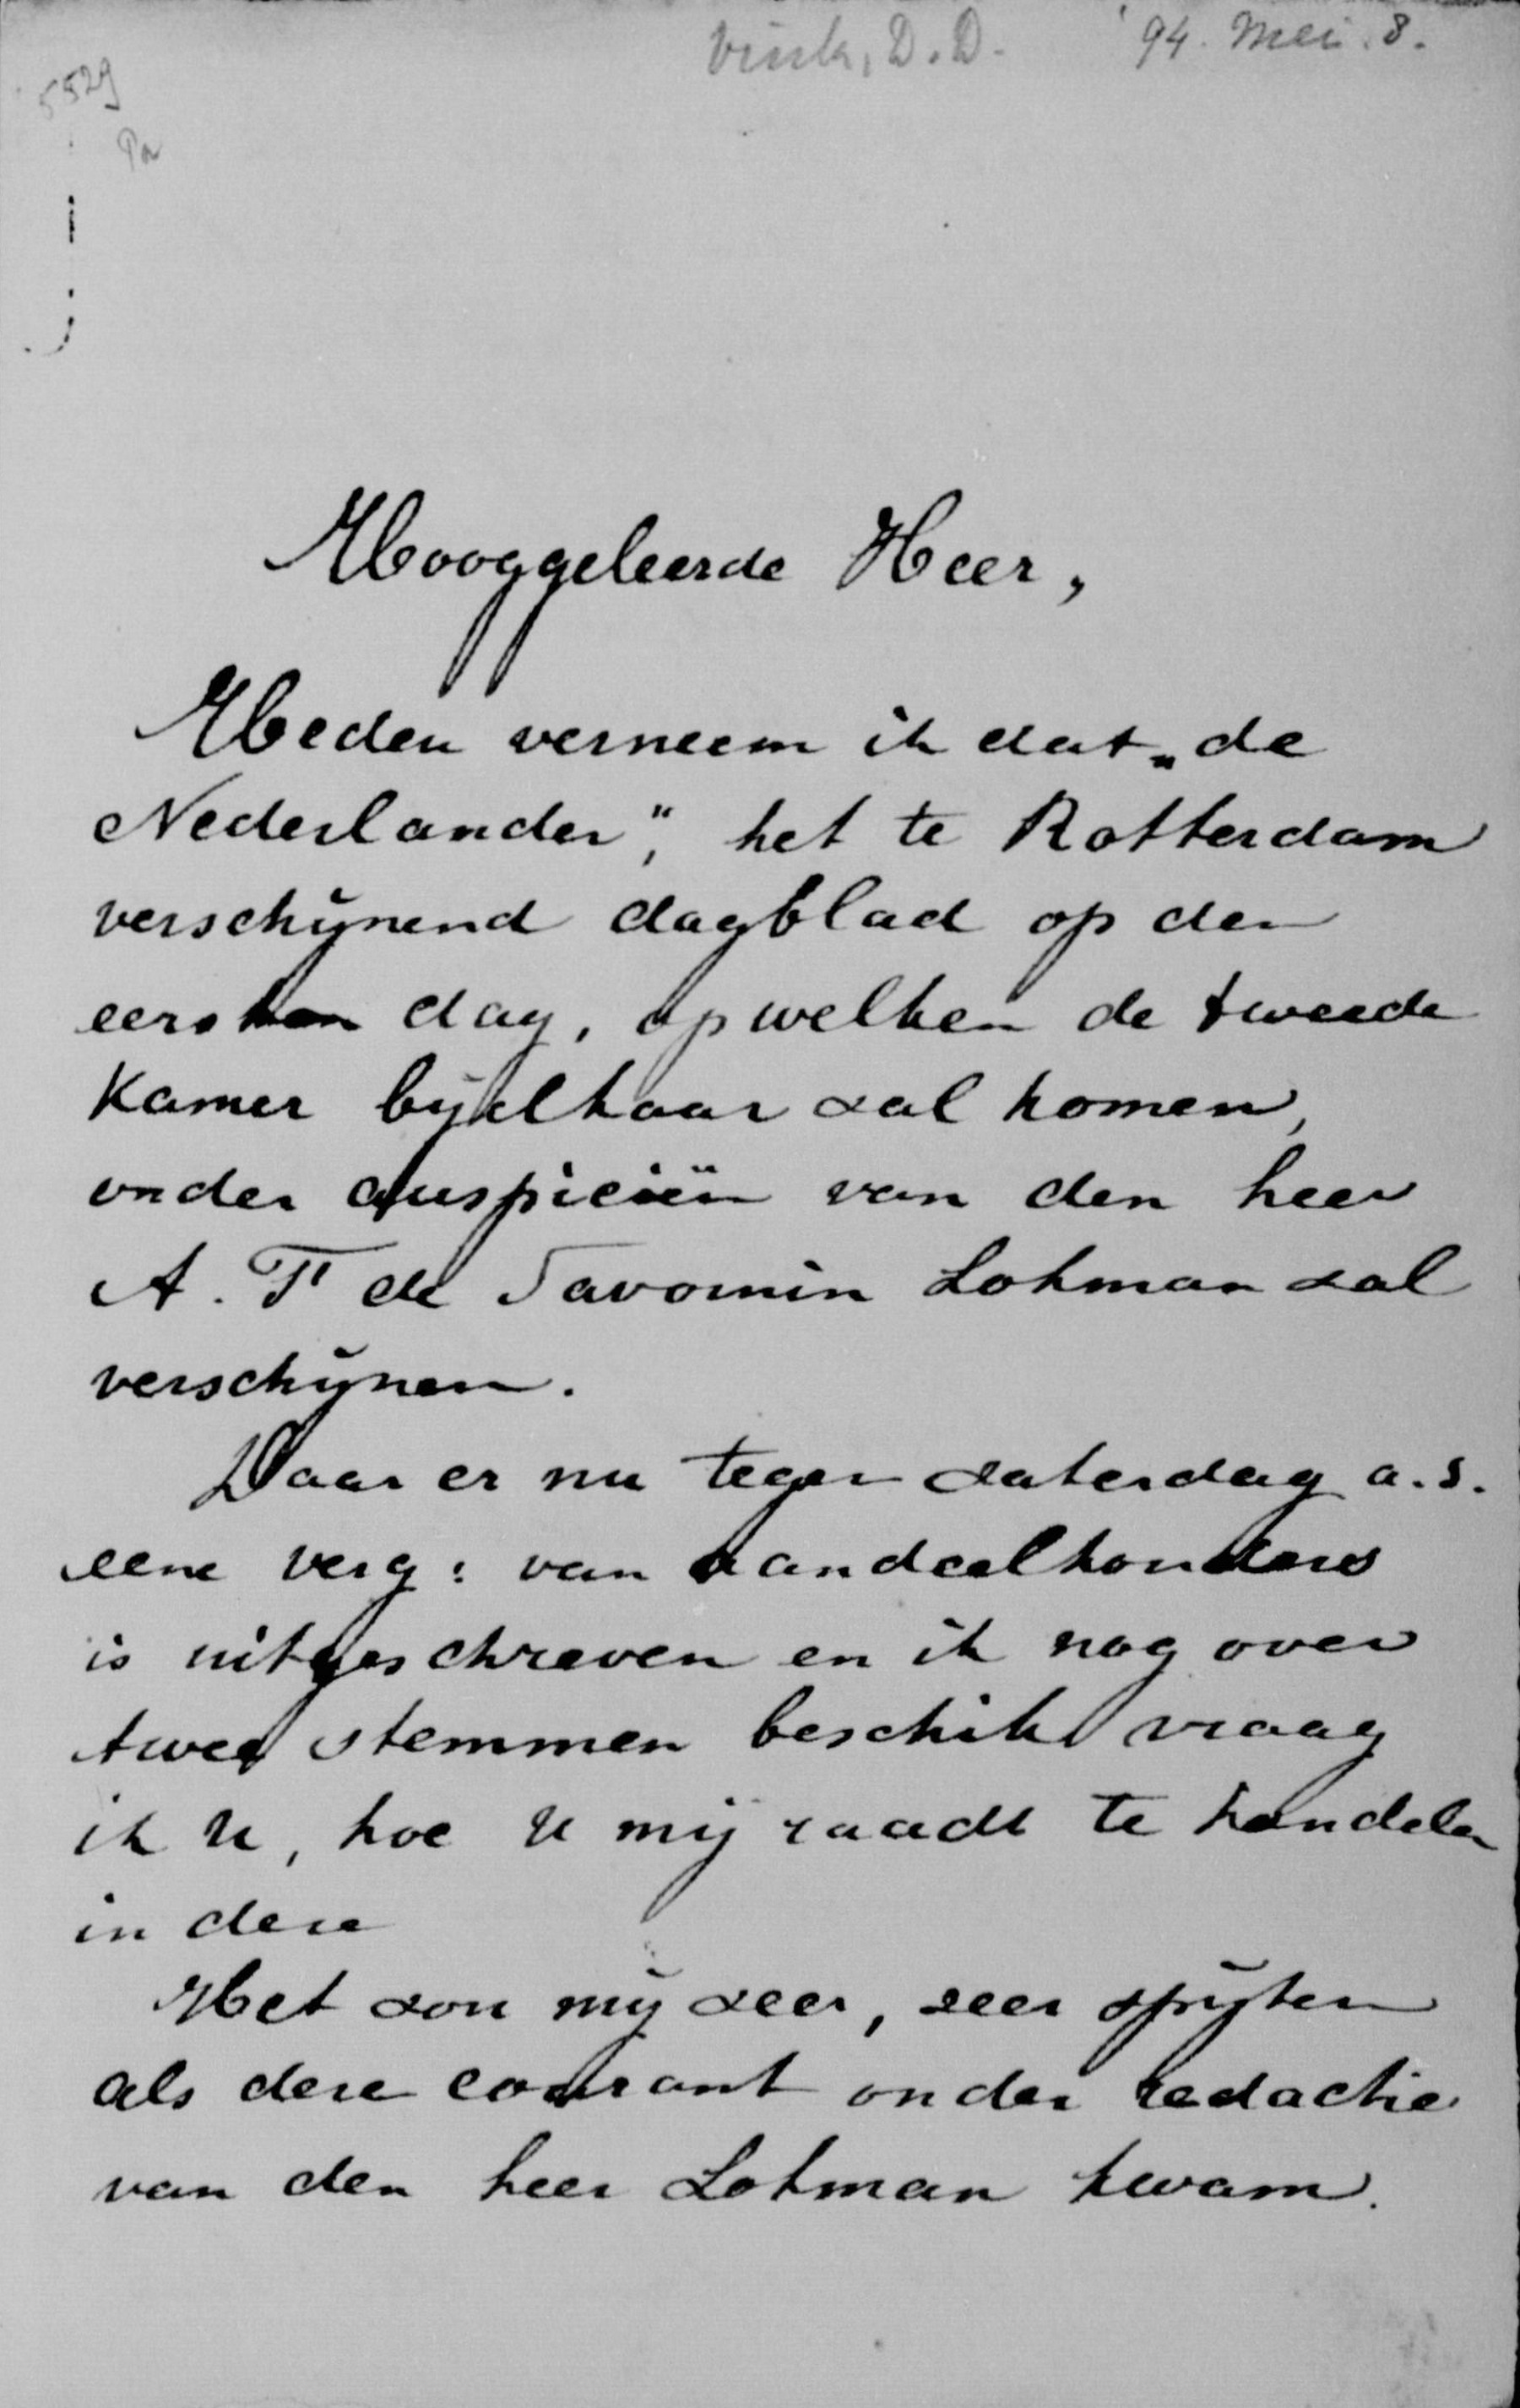 Vink, D. D. '94. Mei. 8.
5529
Hooggeleerde Heer,
Heden verneem ik dat „de
Nederlander", het te Rotterdam
verschijnend dagblad op den
eersten dag, op welken de tweede
Kamer bijelkaar zal komen,
onder auspiciën van den heer
A. F de Savornin Lohman zal
verschijnen.
Daar er nu tegen zaterdag a.s.
eene verg: van aandeelhouders
is uitgeschreven en ik nog over
twee stemmen beschik vraag
ik U, hoe U mij raadt te handelen
in deze
Het zou mij zeer, zeer spijten
als deze courant onder redactie
van den heer Lohman kwam.